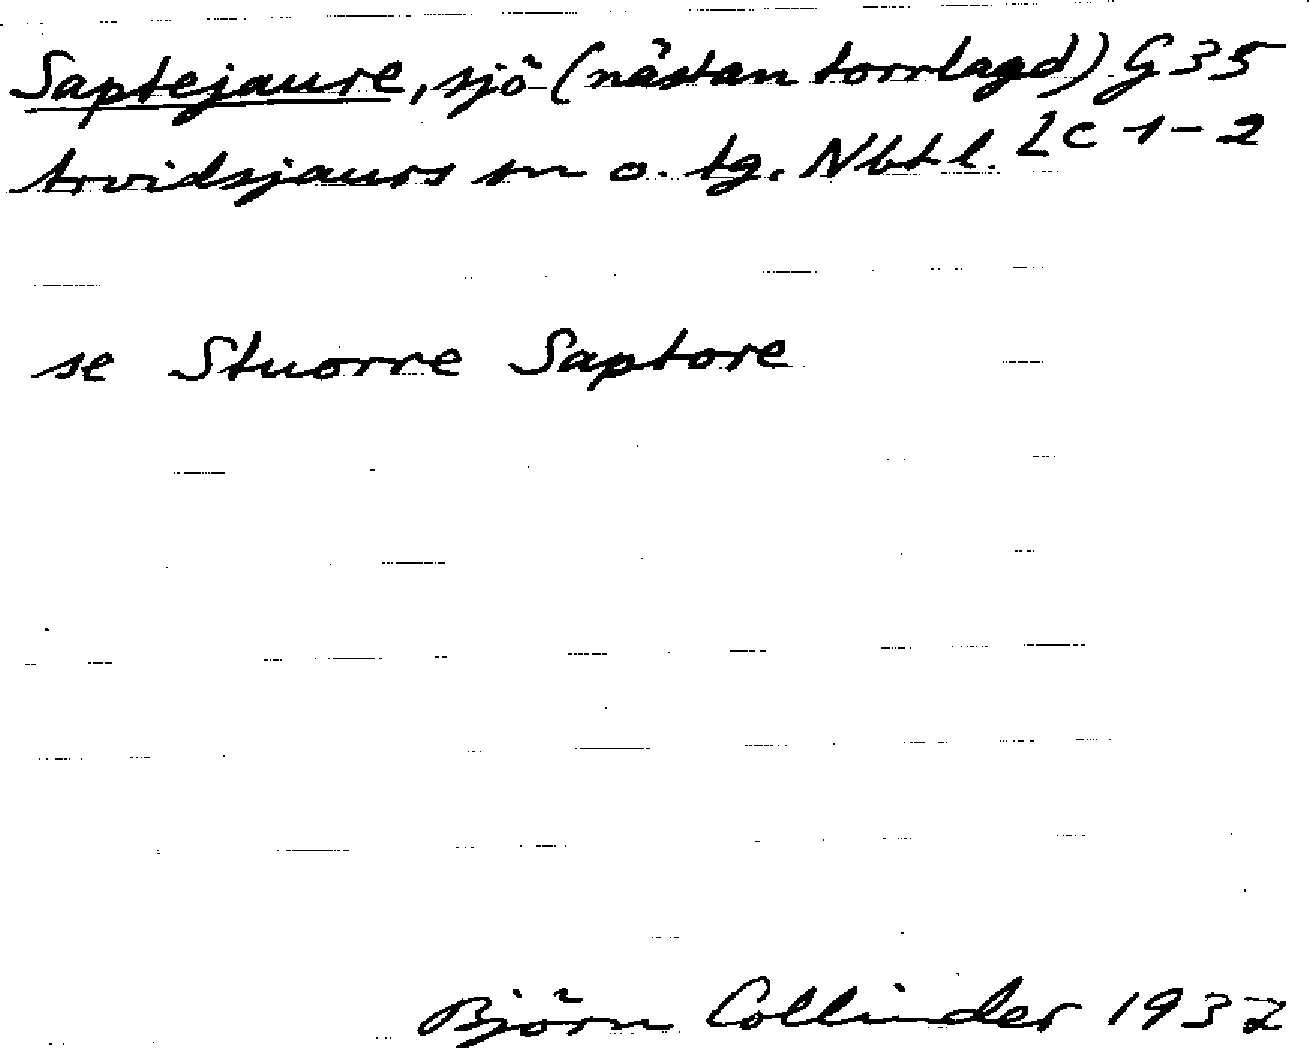 Saptejaure, sjö (nästan torrlagd) G 35
Arvidsjaurs sn o. tg. Nbtl. 2c 1-2
se Stuorre Saptore
Björn Collinder 1932